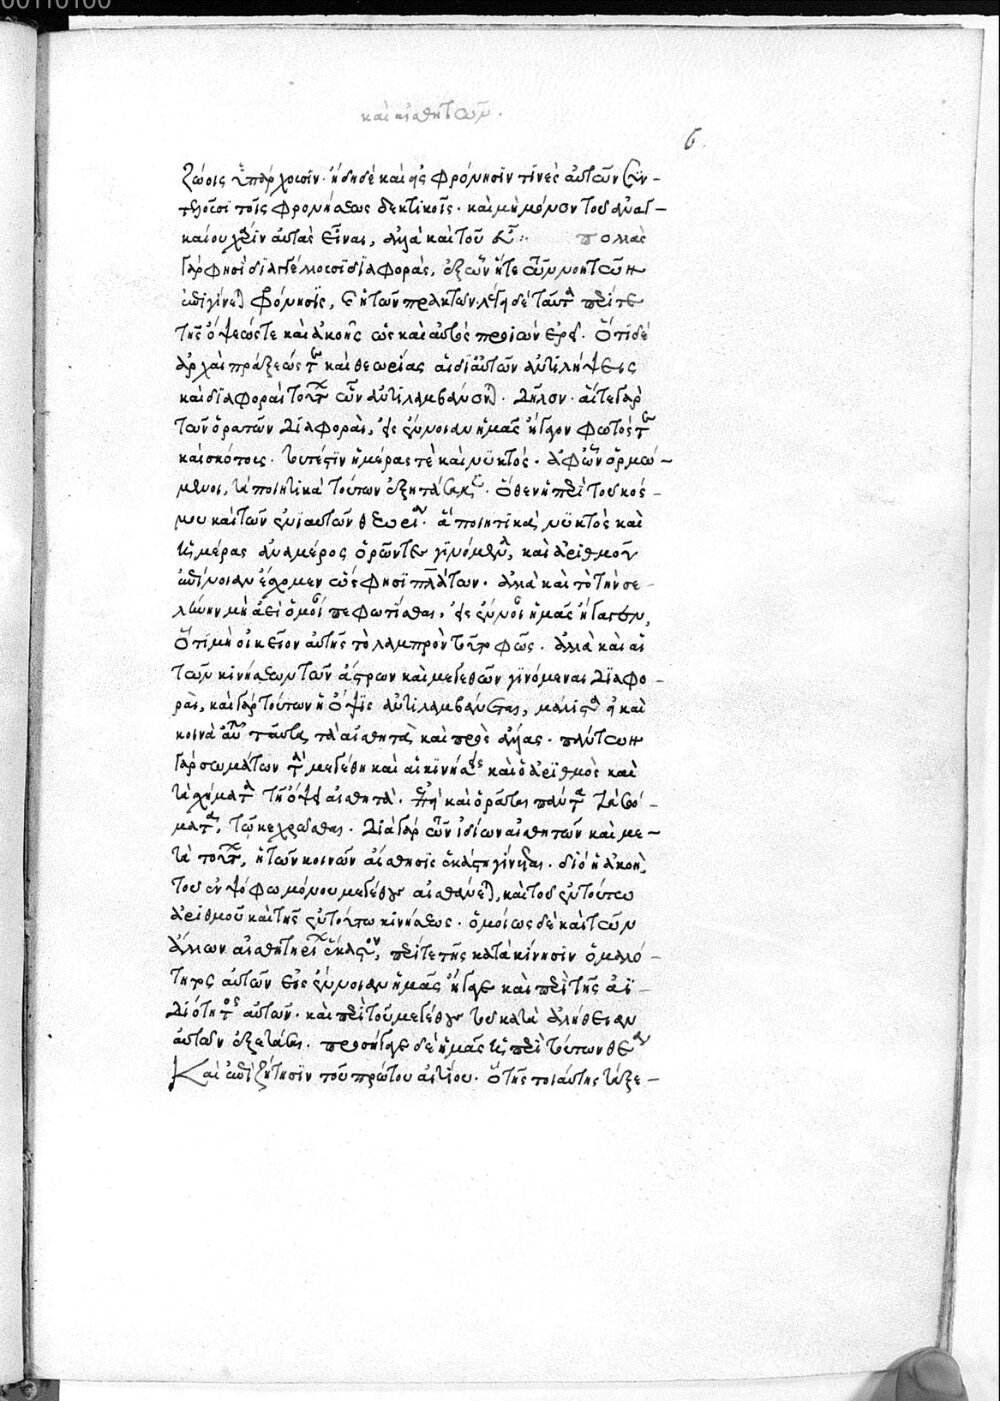 00110100
καὶ αἰσθητῶν.
6.
ζώοις ὑπάρχουσιν. ἤδη δὲ καὶ εἰς φρόνησίν τινες αὐτῶν συν-
τελοῦσι τοῖς φρονήσεως δεκτικοῖς. καὶ μὴ μόνον τοῦ ἀναγ-
καίου χάριν αὐτὰς εἶναι, ἀλλὰ καὶ τοῦ εὖ: πολλὰς
γάρ φησι διαγγέλλουσι διαφοράς, ἐξ ὧν ἥ τε τῶν νοητῶν
ἐπιγίνεται φρόνησις, καὶ ἡ τῶν πρακτῶν. λέγει δὲ ταῦτα περί τε
τῆς ὄψεώς τε καὶ ἀκοῆς ὡς καὶ αὐτὸς προϊὼν ἐρεῖ. ὅτι δὲ
ἀρχαὶ πράξεώς τε καὶ θεωρίας αἱ δι' αὐτῶν ἀντιλήψεις
καὶ διαφοραὶ τούτων ὧν ἀντιλαμβάνονται. δῆλον. αἵ τε γὰρ
τῶν ὁρατῶν διαφοραὶ, εἰς ἔννοιαν ἡμᾶς ἤγαγον φωτός τε
καὶ σκότους. τουτέστιν ἡμέρας τε καὶ νυκτός. ἀφ' ὧν ὁρμώ-
μενοι, τὰ ποιητικὰ τούτων ἐξητάσαμεν. ὅθεν ἡ περὶ τοῦ κόσ-
μου καὶ τῶν ἐν αὐτῶ θεωρία. ἃ ποιητικὰ νυκτὸς καὶ
ἡμέρας ἀναμέρος ὁρῶνται γινόμενα, καὶ ἀριθμοῦ
ἐπίνοιαν ἔχομεν ὥς φησι πλάτων. ἀλλὰ καὶ τὸ τὴν σε-
λήνην μὴ ἀεὶ ὁμοίως πεφωτίσθαι, εἰς ἔννοιαν ἡμᾶς ἤγαγεν,
ὅτι μὴ οἰκεῖον αὐτῆς τὸ λαμπρὸν τοῦτο φῶς. ἀλλὰ καὶ αἱ
τῶν κινήσεων τῶν ἄστρων καὶ μεγεθῶν γινόμεναι διαφο-
ραὶ, καὶ γὰρ τούτων ἡ ὄψις ἀντιλαμβάνεται, μάλιστα εἰ καὶ
κοινὰ αὐτῆς ταῦτα τὰ αἰσθητὰ καὶ πρὸς ἄλλας. πάντων
γὰρ σωμάτων τὰ μεγέθη καὶ αἱ κινήσεις καὶ ὁ ἀριθμὸς καὶ
τὰ σχήματα τῇ ὄψει αἰσθητά. ἐπεὶ καὶ ὁρᾶται πάντα τὰ σώ-
ματα, τῶ κεχρῶσθαι. διὰ γὰρ τῶν ἰδίων αἰσθητῶν καὶ με-
τὰ τούτων, ἡ τῶν κοινῶν αἴσθησις ἑκάστη γίνεται. διὸ ἡ ἀκοὴ,
τοῦ ἐν ψόφω μόνου μεγέθους αἰσθάνεται, καὶ τοῦ ἐν τούτω
ἀριθμοῦ καὶ τῆς ἐν τούτω κινήσεως. ὁμοίως δὲ καὶ τῶν
ἄλλων αἰσθητηρίων ἕκαστον, περί τε τῆς κατὰ κίνησιν ὁμαλό-
τητος αὐτῶν εἰς ἔννοιαν ἡμᾶς ἤγαγε καὶ περὶ τῆς ἀϊ-
διότητος αὐτῶν. καὶ περὶ τοῦ μεγέθους τοῦ κατὰ ἀλήθειαν
αὐτῶν ἐξετάσαι. προσήγαγε δὲ ἡμᾶς ἡ περὶ τούτων θέα
καὶ ἐπὶ ζήτησιν τοῦ πρώτου αἰτίου. ὃ τῆς τοιαύτης τάξε-